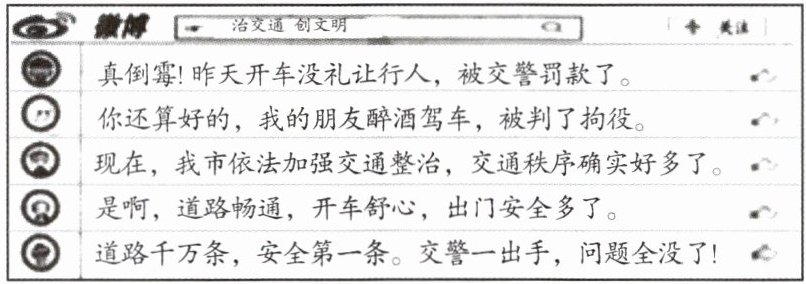 微博 治交通 创文明 关注
真倒霉!昨天开车没礼让行人，被交警罚款了。
你还算好的，我的朋友醉酒驾车，被判了拘役。
现在，我市依法加强交通整治，交通秩序确实好多了。
是啊，道路畅通，开车舒心，出门安全多了。
道路千万条，安全第一条。交警一出手，问题全没了!